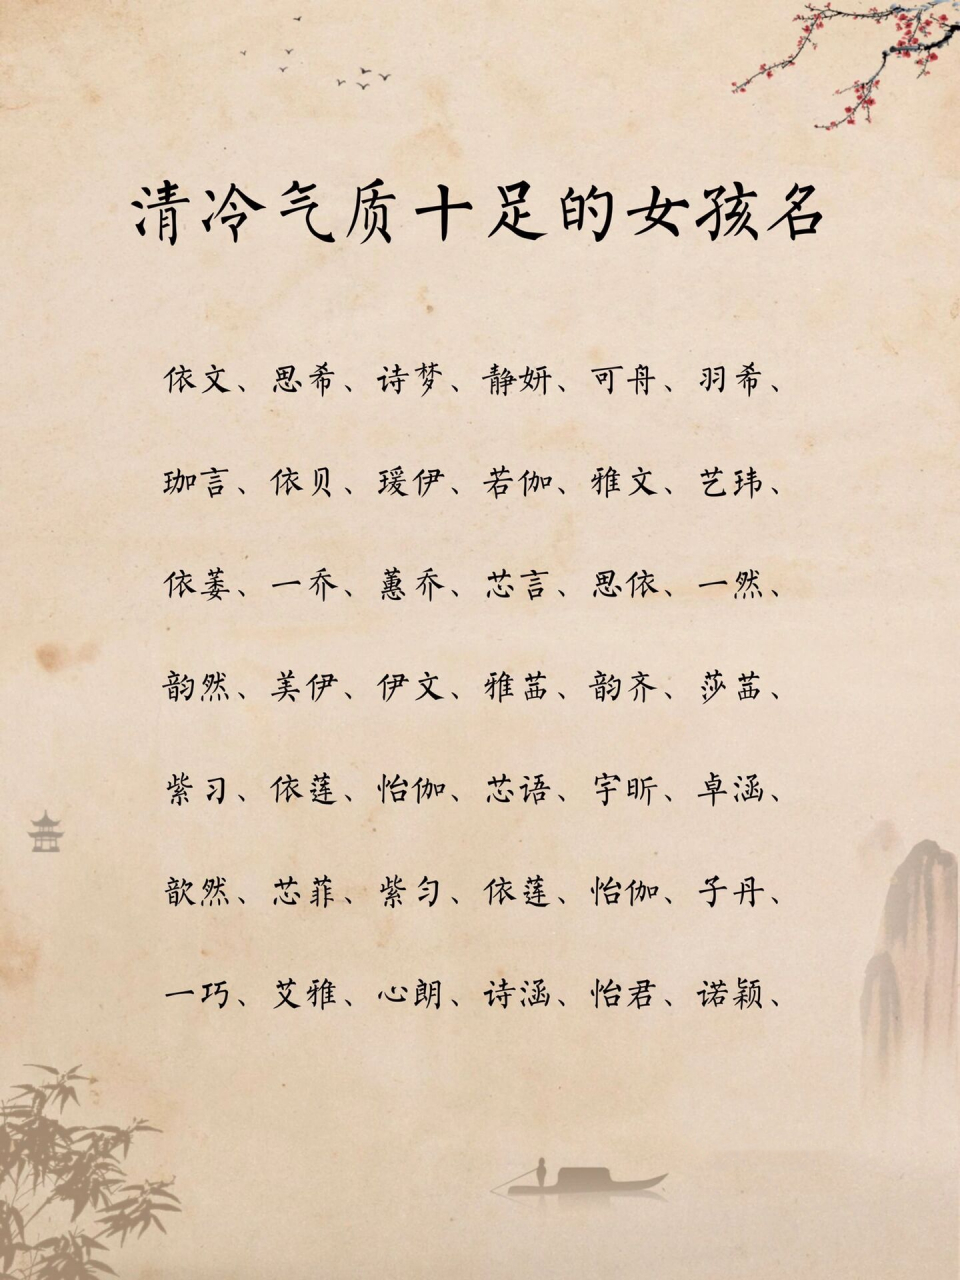 清冷气质十足的女孩名
依文、思希、诗梦、静妍、可舟、羽希、
珈言、依贝、瑗伊、若伽、雅文、艺玮、
依萎、一乔、蕙乔、芯言、思依、一然、
韵然、美伊、伊文、雅茁、韵齐、莎茁、
紫习、依莲、怡伽、芯语、宇昕、卓涵、
歆然、芯菲、紫匀、依莲、怡伽、子丹、
一巧、艾雅、心朗、诗涵、怡君、诺颖、